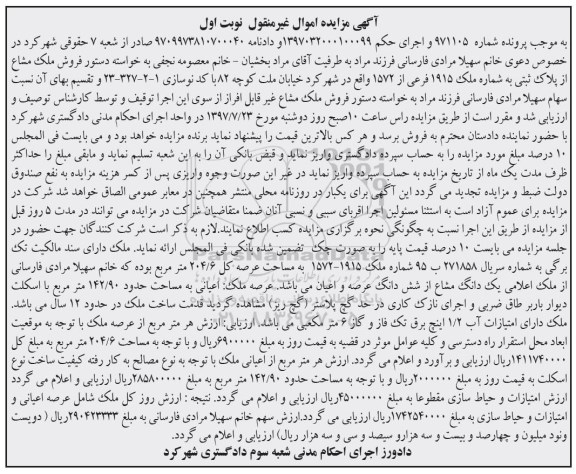 آگهی مزایده اموال غیرمنقول نوبت اول
به موجب پرونده شماره ۹۷۱۱۰۵ و اجرای حکم ۱۳۹۷۰۳۲۰۰۰۱۰۰۰۹۹و دادنامه ۹۷۰۹۹۷۳۸۱۰۷۰۰۰۴۰ صادر از شعبه ۷ حقوقی شهرکرد در
خصوص دعوی خانم سهیلا مرادی فارسانی فرزند مراد به طرفیت آقای مراد بخشیان - خانم معصومه نجفی به خواسته دستور فروش ملک مشاع
از پلاک ثبتی به شماره ملک ۱۹۱۵ فرعی از ۱۵۷۲ واقع در شهرکرد خیابان ملت کوچه ۸۲با کد نوسازی ۱-۲-۳۲۷-۲۳ و تقسیم بهای آن نسبت
سهام سهیلا مرادی فارسانی فرزند مراد به خواسته دستور فروش ملک مشاع غیر قابل افراز از سوی این اجرا توقیف و توسط کارشناس توصیف و
ارزیابی شد و مقرر است از طریق مزایده راس ساعت ۱۰صبح روز دوشنبه مورخ ۱۳۹۷/۷/۲۳ در واحد اجرای احکام مدنی دادگستری شهرکرد
با حضور نماینده دادستان محترم به فروش برسد و هر کس بالاترین قیمت را پیشنهاد نماید برنده مزایده خواهد بود و می بایست فی المجلس
۱۰ درصد مبلغ مورد مزایده را به حساب سپرده دادگستری واریز نماید و قبض بانکی آن را به این شعبه تسلیم نماید و مابقی مبلغ را حداکثر
ظرف مدت یک ماه از تاریخ مزایده به حساب سپرده واریز نماید در غیر این صورت وجوه واریزی پس از کسر هزینه مزایده به نفع صندوق
دولت ضبط و مزایده تجدید می گردد این آگهی برای یکبار در روزنامه محلی منتشر همچنین در معابر عمومی الصاق خواهد شد شرکت در
مزایده برای عموم آزاد است به استثنا مسئولین اجرا اقربای سببی و نسبی آنان ضمنا متقاضیان شرکت در مزایده می توانند در مدت ۵ روز قبل
از مزایده از طریق این اجرا نسبت به چگونگی نحوه برگزاری مزایده کسب اطلاع نمایند.لازم به ذکر است شرکت کنندگان جهت حضور در
جلسه مزایده می بایست ۱۰ درصد قیمت پایه را به صورت چک تضمین شده بانکی فی المجلس ارائه نماید. ملک دارای سند مالکیت تک
برگی به شماره سریال ۲۷۱۸۵۸ ب ۹۵ شماره ملک ۱۹۱۵-۱۵۷۲ به مساحت عرصه کل ۲۰۴/۶ متر مربع بوده که خانم سهیلا مرادی فارسانی
از ملک اعلامی یک دانگ مشاع از شش دانگ عرصه و اعیان می باشد. عرصه ملک: اعیانی به مساحت حدود ۱۴۲/۹۰ متر مربع با اسکلت
دیوار باربر طاق ضربی و اجرای نازک کاری در حد گچ پلاستر (گچ ریز) مشاهده گردید قدمت ساخت ملک در حدود ۱۲ سال می باشد.
ملک دارای امتیازات آب ۱/۲ اینچ برق تک فاز و گاز ۶ متر مکعبی می باشد. ارزیابی: ارزش هر متر مربع از عرصه ملک با توجه به موقعیت
ابعاد محل استقرار راه دسترسی و کلیه عوامل موثر در قضیه به قیمت روز به مبلغ ۶۹۰۰۰۰۰ریال و با توجه به مساحت ۲۰۴/۶ متر مربع به مبلغ کل
۱۴۱۱۷۴۰۰۰۰ریال ارزیابی و برآورد و اعلام می گردد. ارزش هر متر مربع از اعیانی ملک با توجه به نوع مصالح به کار رفته کیفیت ساخت نوع
اسکلت به قیمت روز به مبلغ ۲۰۰۰۰۰۰ریال و با توجه به مساحت حدود ۱۴۲/۹۰ متر مربع به مبلغ ۲۸۵۸۰۰۰۰۰ ریال ارزیابی و اعلام می گردد
ارزش امتیازات و حیاط سازی مقطوعا به مبلغ ۴۵۰۰۰۰۰۰ریال ارزیابی و اعلام می گردد. نتیجه : ارزش روز کل ملک شامل عرصه اعیانی و
امتیازات و حیاط سازی به مبلغ ۱۷۴۲۵۴۰۰۰۰ریال ارزیابی می گردد.ارزش سهم خانم سهیلا مرادی فارسانی به مبلغ ۲۹۰۴۲۳۳۳۳ریال ( دویست
ونود میلیون و چهارصد و بیست و سه هزارو سیصد و سی و سه هزار ریال) ارزیابی و اعلام می گردد.
دادورز اجرای احکام مدنی شعبه سوم دادگستری شهرکرد